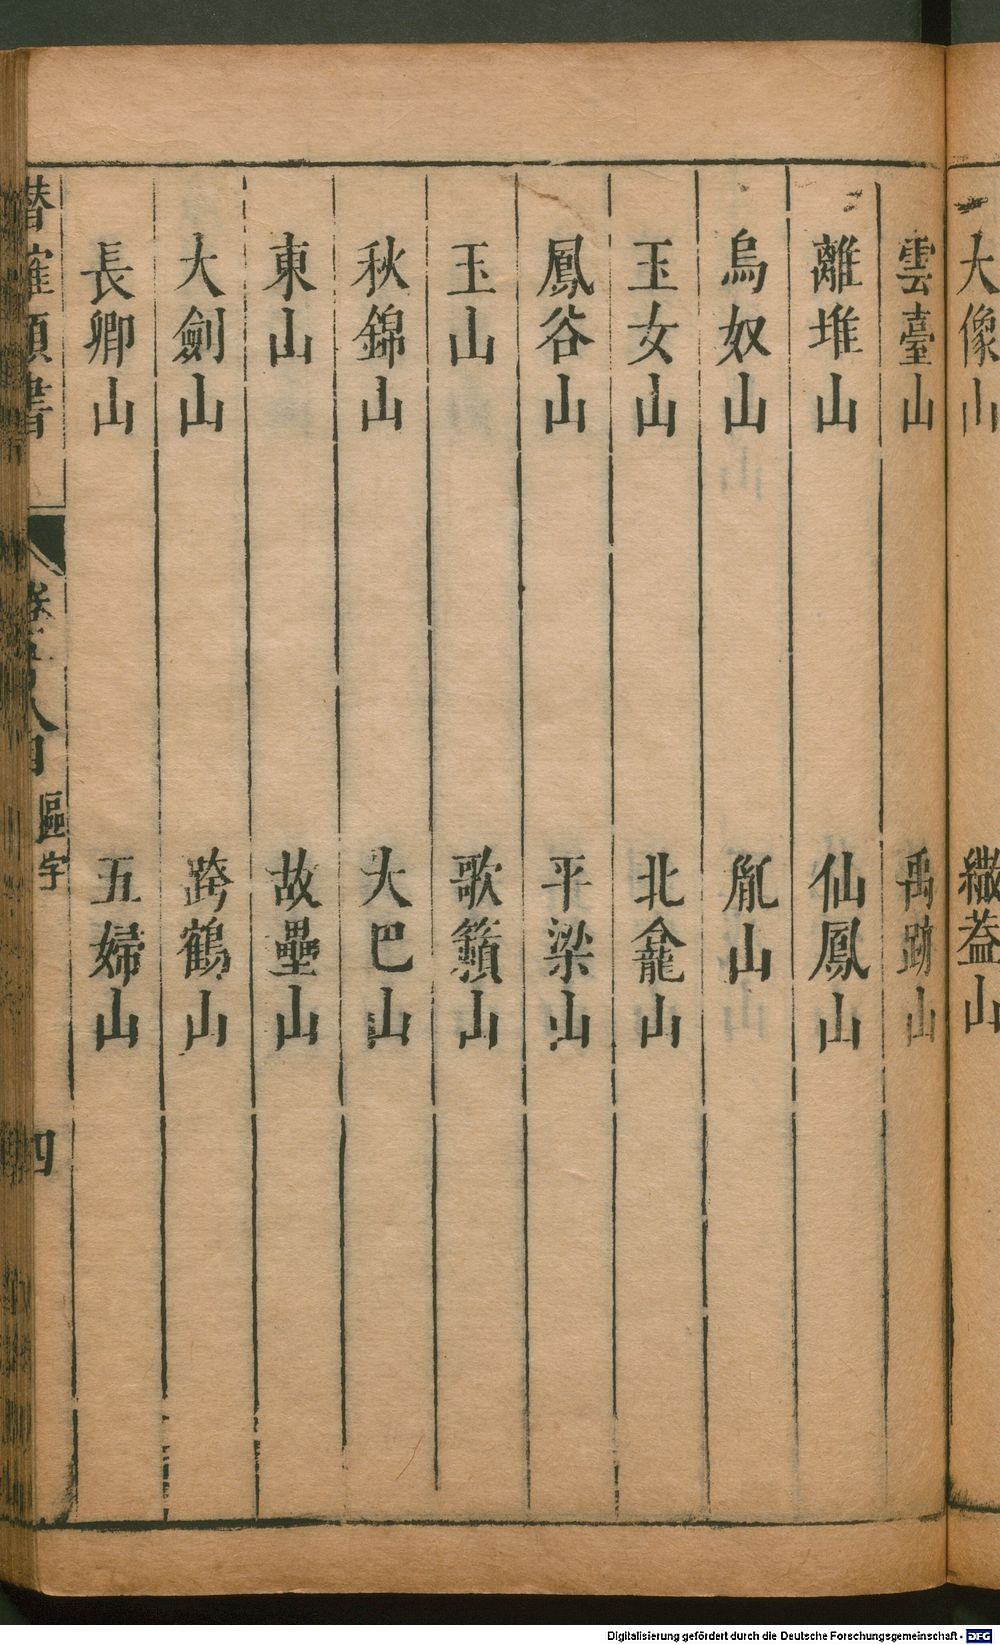 大像山　繖蓋山
雲臺山　禹跡山
離堆山　仙鳳山
烏奴山　胤山
玉女山　北龕山
鳳谷山　平梁山
玉山　歌籟山
秋錦山　大巴山
東山　故壘山
大劍山　跨鶴山
長卿山　五婦山
潛確類書　區字　四
Digitalisierung gefördert durch die Deutsche Forschungsgemeinschaft - DFG